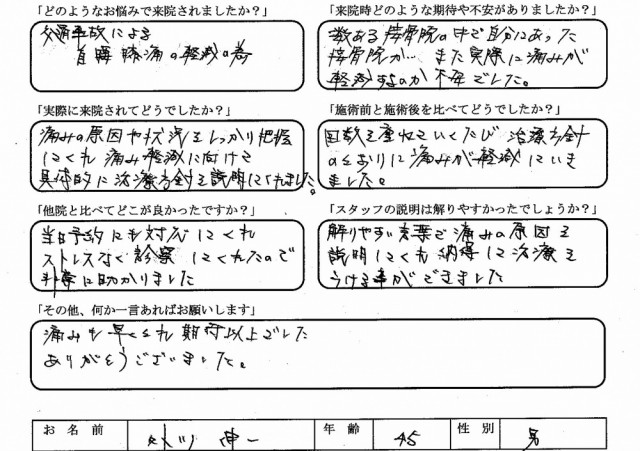 「どのようなお悩みで来院されましたか？」
交通事故による
首 腰 膝 痛の軽減の為
「来院時どのような期待や不安がありましたか？」
数ある接骨院の中で自分にあった
接骨院か… また実際に痛みが
軽減するのか不安でした。
「実際に来院されてどうでしたか？」
痛みの原因や状況をしっかり把握
してくれ 痛み軽減に向けて
具体的に治療方針を説明してくれました。
「施術前と施術後を比べてどうでしたか？」
回数を重ねていくたび 治療方針
のとおりに痛みが軽減していき
ました。
「他院と比べてどこが良かったですか？」
当日予約にも対応してくれ
ストレスなく診察してくれたので
非常に助かりました
「スタッフの説明は解りやすかったでしょうか？」
解りやすい言葉で痛みの原因を
説明してくれ 納得して治療を
うける事ができました
「その他、何か一言あればお願いします」
痛みも早くとれ 期待以上でした
ありがとうございました。
お 名 前
伸一
年 齢 45 性 別 男